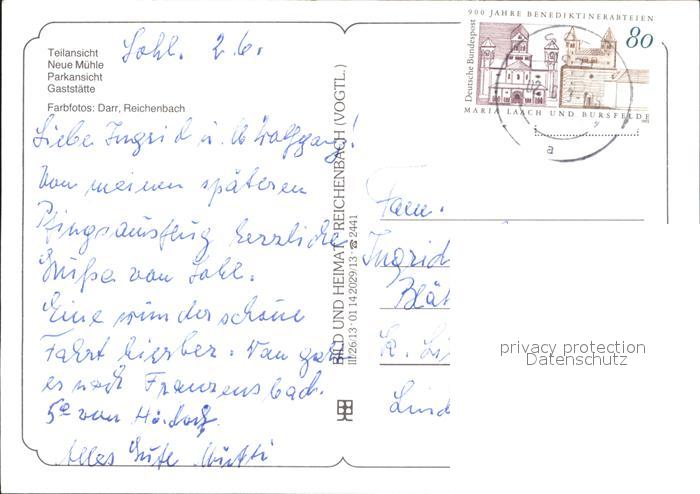 Teilansicht
Neue Mühle
Parkansicht
Gaststätte
Farbfotos: Darr, Reichenbach
Sohl. 2.6.
Liebe Ingrid u. Wolfgang!
Von meinem späteren
Pfingstausflug herzliche
Grüße von Sohl.
Eine wunderschöne
Fahrt hierher. Von
es nach Franzensbach.
Alles Gute Mutti
BILD UND HEIMAT REICHENBACH (VOGTL.)
III/26/13 · 01 14 2029/13 · ☎ 2441
900 JAHRE BENEDIKTINERABTEIEN
80
Deutsche Bundespost
MARIA LAACH UND BURSFELDE
a
Fam.
Ingrid
Blät
Lind
privacy protection
Datenschutz